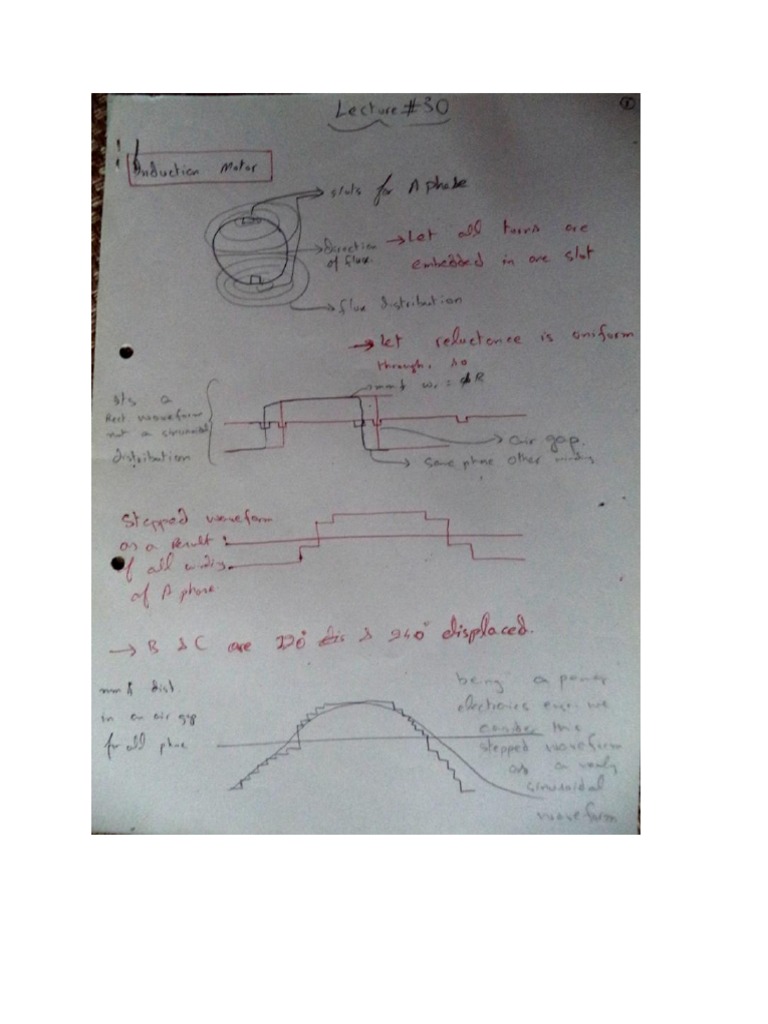 Lecture #30
Induction Motor
slots for A phase
Direction
of flux.
→ Let all turns are
embedded in one slot
flux distribution
→ Let reluctance is uniform
through, so
mmf = φR
Its a
Rect waveform
not a sinusoidal
distribution
air gap.
Same phase other winding
Stepped waveform
as a result
of all winding
of A phase
→ B & C are 120° & 240° displaced.
mmf dist.
in an air gap
for all phase
being a power
electronics engr. we
consider this
stepped waveform
as a nearly
sinusoidal
waveform